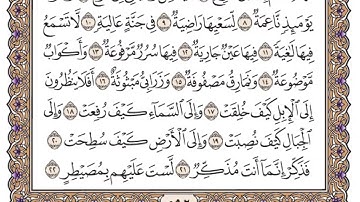 يَوْمَئِذٍ نَّاعِمَةٌ ٨ لِّسَعْيِهَا رَاضِيَةٌ ٩ فِي جَنَّةٍ عَالِيَةٍ ١٠ لَّا تَسْمَعُ
فِيهَا لَٰغِيَةً ١١ فِيهَا عَيْنٌ جَارِيَةٌ ١٢ فِيهَا سُرُرٌ مَّرْفُوعَةٌ ١٣ وَأَكْوَابٌ
مَّوْضُوعَةٌ ١٤ وَنَمَارِقُ مَصْفُوفَةٌ ١٥ وَزَرَابِيُّ مَبْثُوثَةٌ ١٦ أَفَلَا يَنظُرُونَ
إِلَى الْإِبِلِ كَيْفَ خُلِقَتْ ١٧ وَإِلَى السَّمَاءِ كَيْفَ رُفِعَتْ ١٨ وَإِلَى
الْجِبَالِ كَيْفَ نُصِبَتْ ١٩ وَإِلَى الْأَرْضِ كَيْفَ سُطِحَتْ ٢٠
فَذَكِّرْ إِنَّمَا أَنتَ مُذَكِّرٌ ٢١ لَّسْتَ عَلَيْهِم بِمُصَيْطِرٍ ٢٢